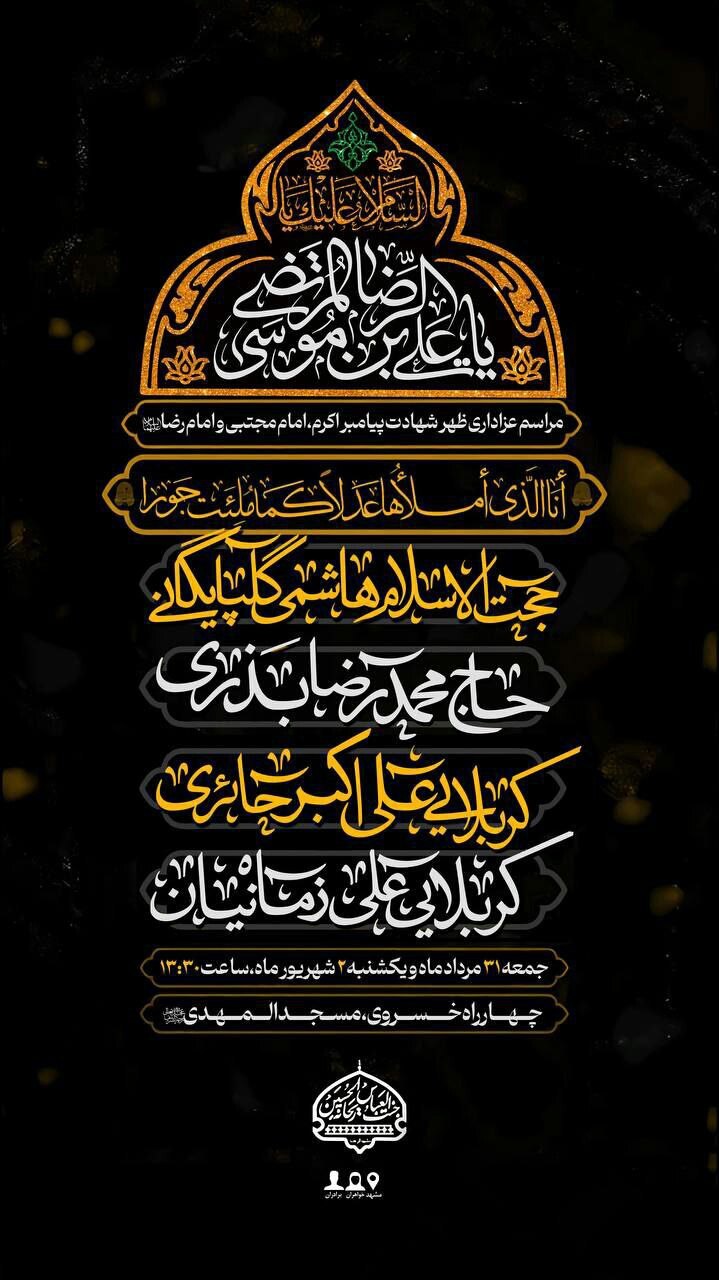 السلام علیک یا
یا علی بن موسی الرضا المرتضی
مراسم عزاداری ظهر شهادت پیامبر اکرم، امام مجتبی و امام رضا علیهم‌السلام
أنا الذی أملأُها عدلاً کما مُلِئَت جورا
حجت الاسلام هاشمی گلپایگانی
حاج محمدرضا بذری
کربلایی علی اکبر حائری
کربلایی علی زمانیان
جمعه ۳۱ مرداد ماه و یکشنبه ۲ شهریور ماه، ساعت ۱۳:۳۰
چهارراه خسروی، مسجد المهدی
مشهد خواهران برادران